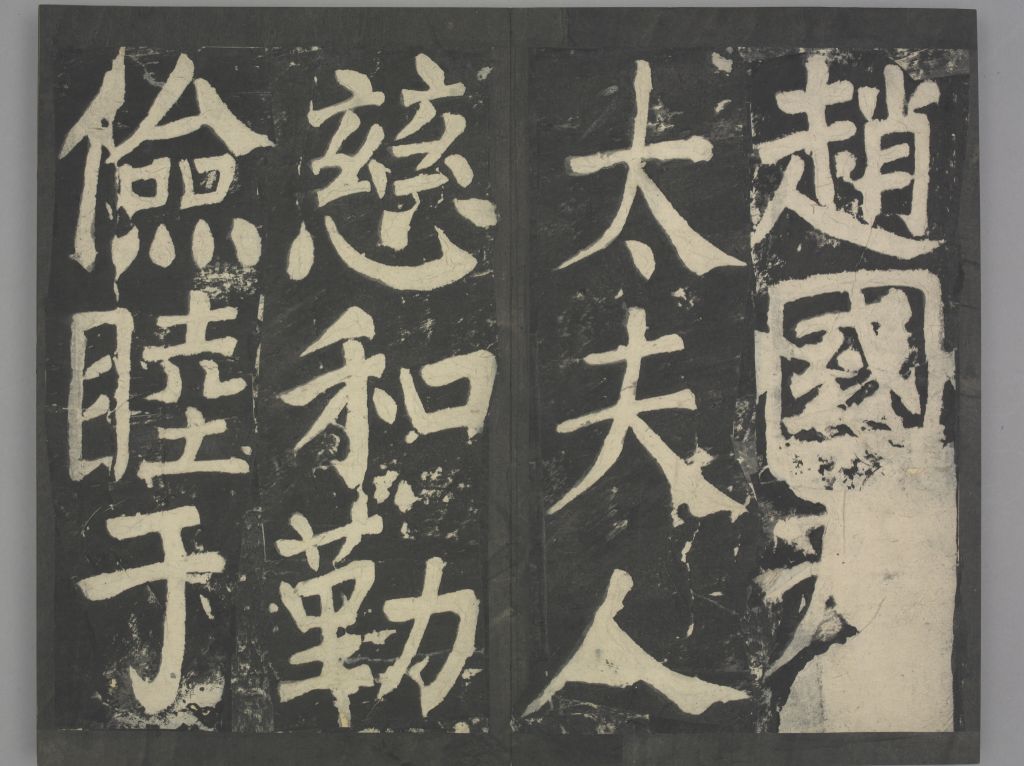 趙國
太夫人
慈和勤
儉睦于